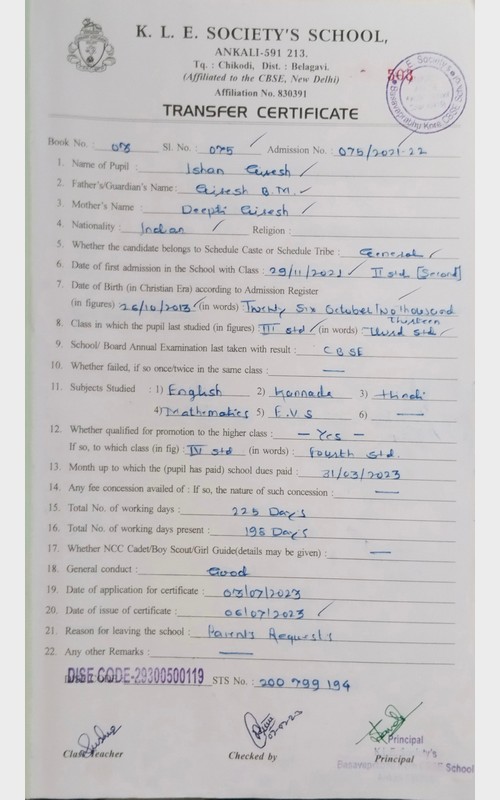 K. L. E. SOCIETY'S SCHOOL,
ANKALI-591 213.
Tq. : Chikodi, Dist. : Belagavi.
(Affiliated to the CBSE, New Delhi)
Affiliation No. 830391
TRANSFER CERTIFICATE
Book No. : 08 Sl. No. : 075 Admission No. : 075/2021-22
1. Name of Pupil : Ishan Giresh
2. Father's/Guardian's Name : Giresh B.M.
3. Mother's Name : Deepti Giresh
4. Nationality : Indian Religion :
5. Whether the candidate belongs to Schedule Caste or Schedule Tribe : General
6. Date of first admission in the School with Class : 29/11/2021 II std [Second]
7. Date of Birth (in Christian Era) according to Admission Register
(in figures) 26/10/2013 (in words) Twenty Six October Two thousand
Thirteen
8. Class in which the pupil last studied (in figures) : III std (in words) Third std
9. School/ Board Annual Examination last taken with result : CBSE
10. Whether failed, if so once/twice in the same class : —
11. Subjects Studied : 1) English 2) Kannada 3) Hindi
4) Mathematics 5) E.V.S 6) —
12. Whether qualified for promotion to the higher class : — Yes —
If so, to which class (in fig) : IV std (in words) : Fourth std.
13. Month up to which the (pupil has paid) school dues paid : 31/03/2023
14. Any fee concession availed of : If so, the nature of such concession : —
15. Total No. of working days : 225 Days
16. Total No. of working days present : 195 Days
17. Whether NCC Cadet/Boy Scout/Girl Guide(details may be given) : —
18. General conduct : Good
19. Date of application for certificate : 03/07/2023
20. Date of issue of certificate : 06/07/2023
21. Reason for leaving the school : Parents Requests
22. Any other Remarks : —
DISE CODE-29300500119 STS No. : 200 799 194
Class Teacher Checked by Principal
Principal